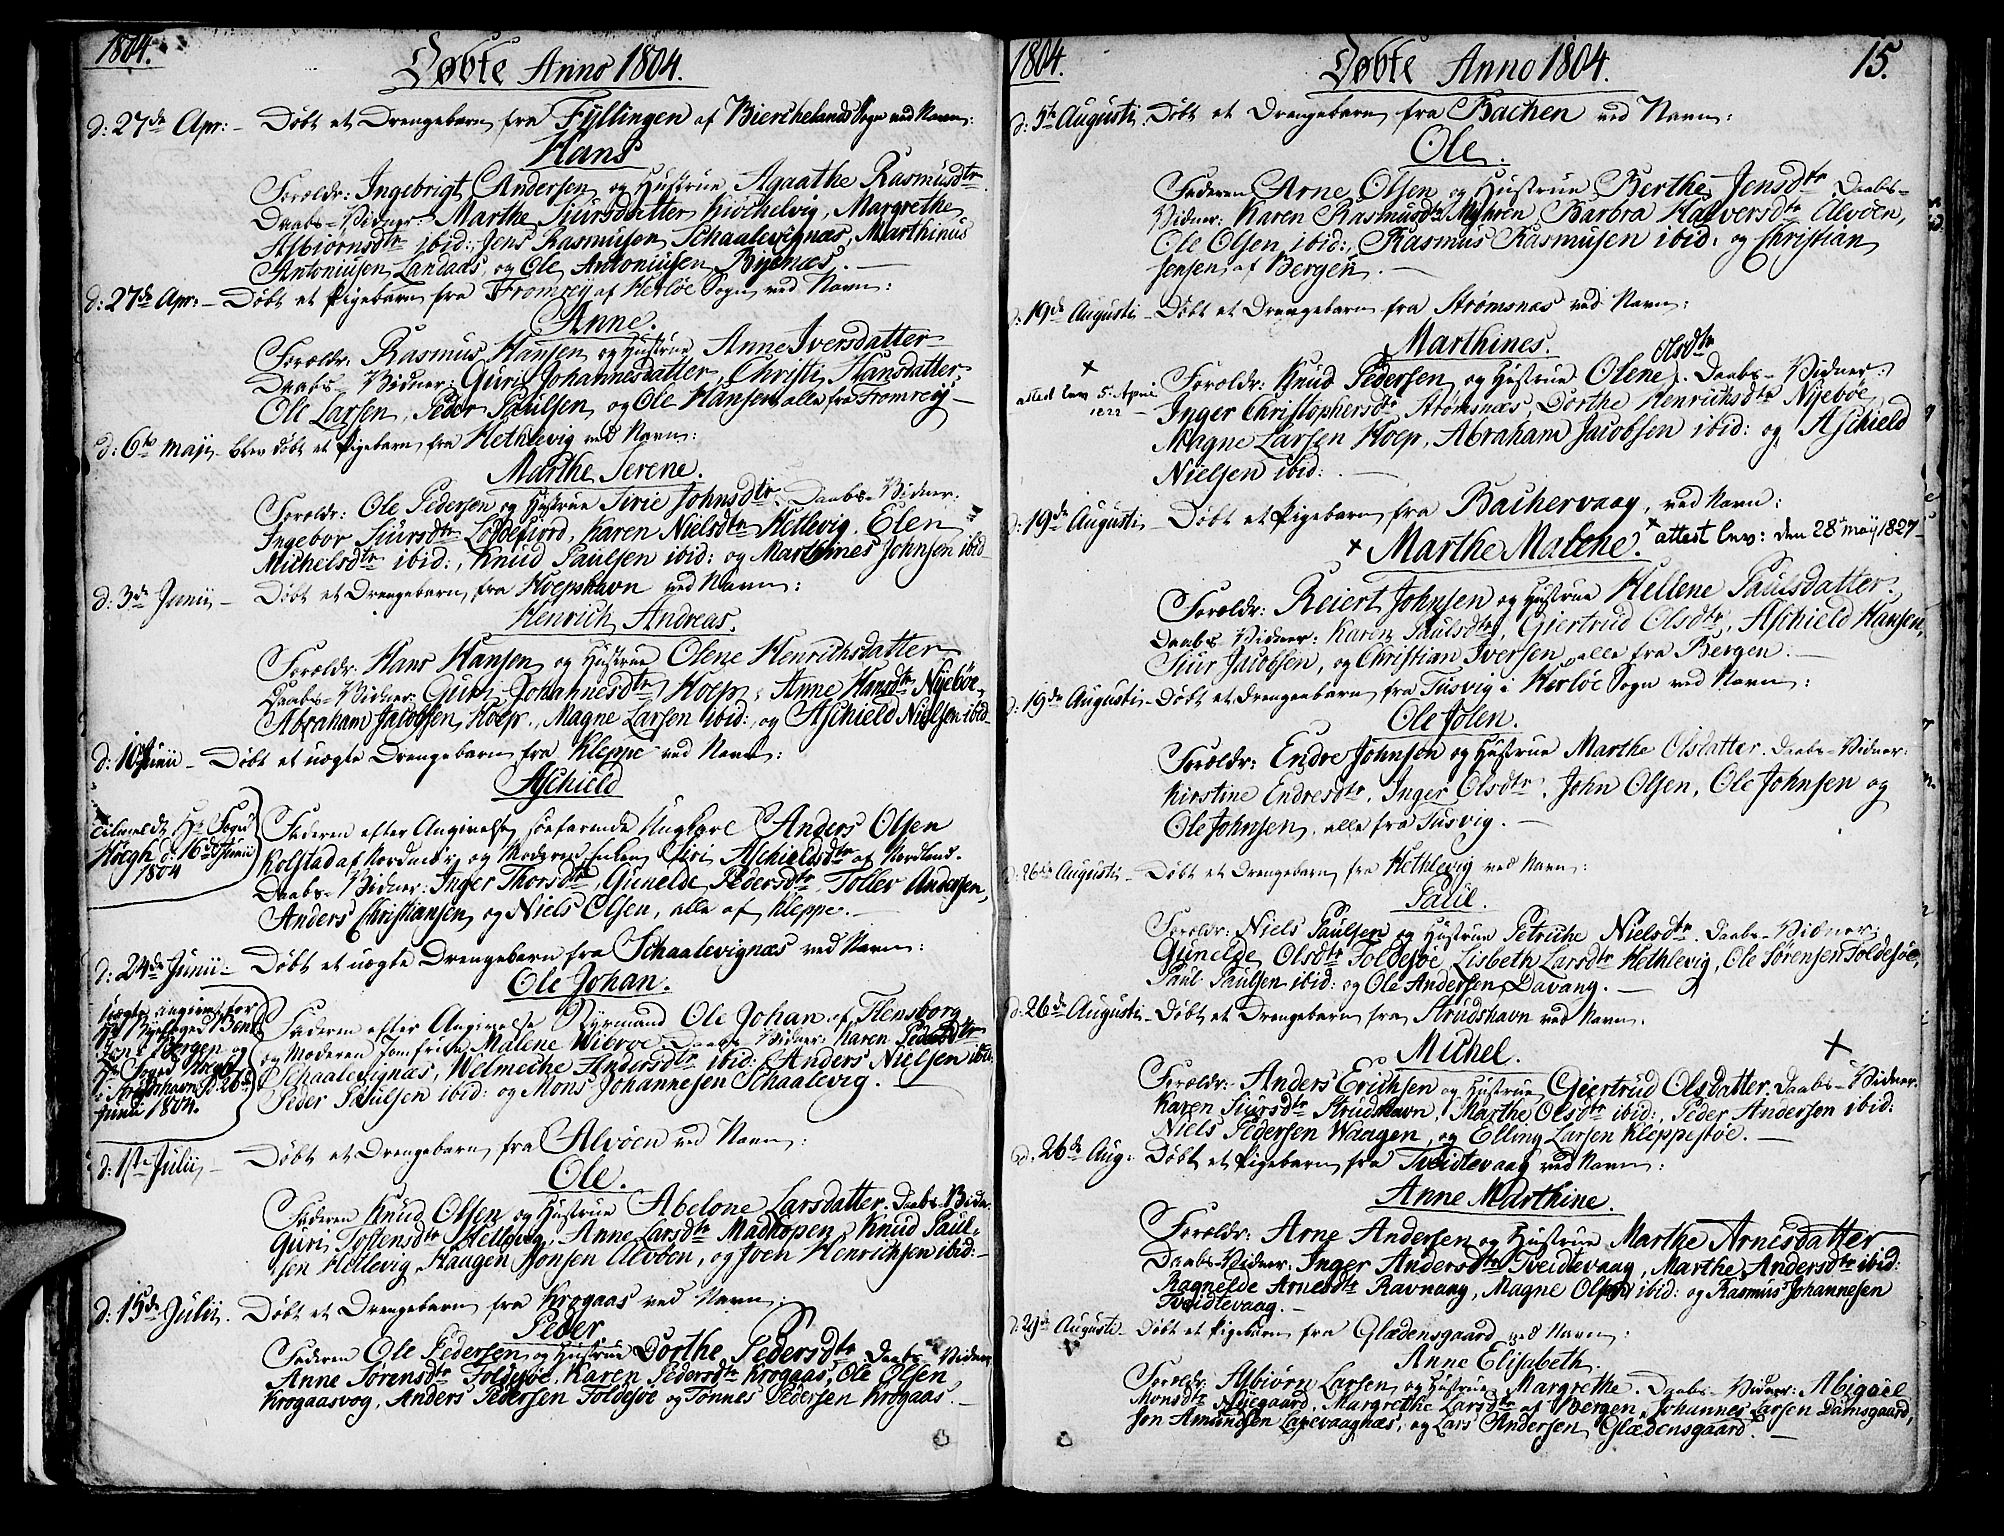 1804.
Døbte Anno 1804.
d: 27de Apr: – Døbt et Drengebarn fra Fyllingen af Bierchelands Sogn ved Navn:
Hans
Foreldr: Ingebrigt Andersen og Hustrue Agaathe Rasmusdtr
Daabs-Vidner: Marthe Siursdatter Kiöchelvig, Margrethe
Asbiörnsdtr ibid: Jens Rasmusen Schaalevignæs, Marthinus
Antoniusen Landaas, og Ole Antoniusen Byenæs. –
d: 27de Apr: – Døbt et Pigebarn fra Fromrey af Herløe Sogn ved Navn:
Anne.
Foreldr: Rasmus Hansen og Hustrue Anne Iversdatter
Daabs-Vidner: Guri Johannesdatter, Christi Hansdatter,
Ole Larsen, Peder Paulsen, og Ole Hansen, alle fra Fromreÿ –
d: 6te Maji – blev døbt et Pigebarn fra Hethlevig ved Navn:
Marthe Serene.
Foreldr: Ole Pedersen og Hustrue Sirie Johnsdtr. Daabs-Vidner:
Ingebor Siursdtr Loddefiord, Karen Nielsdtr Hetlevig. Elen
Michelsdtr ibid:, Knud Paulsen ibid: og Marthines Johnsen ibid
d: 3de Junii – Døbt et Drengebarn fra Hoepshavn ved Navn:
Henrich Andreas.
Foreldr: Hans Hansen og Hustrue Olene Henrichsdatter
Daabs-Vidner: Guri Johannesdtr Hoep, Anne Hansdtr Nyebøe,
Abraham Jacobsen Hoep, Magne Larsen ibid: og Aschield Nielsen ibid –
d: 10 Junii – Døbt et uægte Drengebarn fra Kleppe ved Navn:
Aschield
tilmeldt Hr Fogd
Høegh d: 16de Junii
1804
Faderen efter Angivelse søefarende Ungkarl Anders Olsen
Rolstad af Nordmör, og Moderen Enken Siri Aschieldsdtr af Nordland.
Daabs-Vidner: Inger Thorsdtr, Gunelde Pedersdtr, Tollev Andersen,
Anders Christiansen og Niels Olsen, alle af Kleppe. –
d: 24de Junii – Døbt et uægte Drengebarn fra Schaalevignæs ved Navn:
Ole Johan.
Bergen og
Hr Foged Høegh
i Strudshavn d: 26de
Junii 1804.
Faderen efter Angivelse Styrmand Ole Johan af Flensborg
og Moderen Jomfrue Malene Wibroe. Daabs-Vidner: Karen Pedersdtr
Schaalevignæs, Welmeche Andersdtr ibid: Anders Nielsen ibid:
Peder Paulsen ibid: og Mons Johannesen Schaalevig. –
d: 1ste Julii – Døbt et Drengebarn fra Alvøen ved Navn:
Ole.
Faderen Knud Olsen og Hustrue Abelone Larsdatter. Daabs-Vidn:
Guri Tostensdtr Hetlevig, Anne Larsdtr Madhopen, Knud Paul-
sen Hetlevig, Haagen Monsen Alvöen, og Iven Henrichsen ibid: –
d: 15de Julii. Døbt et Drengebarn fra Krogaas ved Navn:
Peder
Faderen Ole Pedersen og Hustrue Dorthe Pedersdtr. Daabs-Vidner
Anne Sørensdtr Foldesöe, Karen Pedersdtr Krogaas, Ole Olsen
Krogaasvog, Anders Pedersen Foldesöe og Tönnes Pedersen Krogaas. –
1804.
Døbte Anno 1804.
15.
d: 5te Augusti. Døbt et Drengebarn fra Bachen ved Navn:
Ole.
Faderen Arne Olsen og Hustrue Berthe Jensdtr Daabs-
Vidner: Karen Rasmusdtr Myhren, Barbra Halversdtr Alvöen,
Ole Olsen ibid:, Rasmus Rasmusen ibid: og Christian
Jensen af Bergen. –
d: 19de Augusti – Døbt et Drengebarn fra Strømsnæs ved Navn:
Marthines.
attest lev. 5. April
1822 –
Foreldr: Knud Pedersen og Hustrue Olene Olsdtr. Daabs-Vidner:
Inger Christophersdtr Strømsnæs, Dorthe Henrichsdtr Nyebøe,
Magne Larsen Hoep, Abraham Jacobsen ibid: og Aschield
Nielsen ibid: –
d: 19de Augusti – Døbt et Pigebarn fra Bachervaag, ved Navn:
× Marthe Malene. × attest lev: den 28 may 1827 –
Foreldr: Reiert Johnsen og Hustrue Hellene Paulsdatter.
Daabs-Vidner: Karen Paulsdtr, Giertrud Olsdtr, Aschield Hansen,
Siur Jacobsen, og Christian Iversen, alle fra Bergen. –
d: 19de Augusti – Døbt et Drengebarn fra Tusvig i Herløe Sogn ved Navn:
Ole Jolen.
Foreldr: Endre Johnsen og Hustrue Marthe Olsdatter. Daabs-Vidner:
Kirstine Endresdtr, Inger Olsdtr, John Olsen, Ole Johnsen og
Ole Johnsen, alle fra Tusvig. –
d: 26de Augusti – Døbt et Drengebarn fra Hethlevig ved Navn:
Paul.
Foreldr: Niels Paulsen og Hustrue Petriche Nielsdtr. Daabs-Vidner:
Gunelde Olsdtr Foldesöe, Lisbeth Larsdtr Hethlevig, Ole Sørensen Foldesöe,
Paul Paulsen ibid: og Ole Andersen Davang. –
d: 26de Augusti – Døbt et Drengebarn fra Strudshavn ved Navn.
Michel. ×
Foreldr: Anders Erichsen og Hustrue Giertrud Olsdatter. Daabs-Vidner:
Karen Siursdtr Strudshavn, Marthe Olsdtr ibid:, Peder Andersen ibid:
Niels Pedersen Waagen, og Elling Larsen Kleppestöe. –
d: 26de Aug: Døbt et Pigebarn fra Tveidtevaag ved Navn:
Anne Marthine.
Foreldr: Arne Andersen og Hustrue Marthe Arnesdatter
Daabs-Vidner: Inger Andersdtr Tveidtevaag, Marthe Andersdtr ibid:
Ragnelde Arnesdtr Ravnang, Magne Olsen ibid: og Rasmus Johannesen
Tveidtevaag. –
d: 29de Augusti – Døbt et Pigebarn fra Glædensgaard ved Navn:
Anne Elisabeth.
Foreldr: Asbiörn Larsen og Hustrue Margrethe. Daabs-Vidner: Abigael
Monsdtr Nyegaard, Margrethe Larsdtr af Bergen, Johannes Larsen Damsgaard,
Jon Amundsen Laxevaagnæs, og Lars Andersen Glædensgaard. –